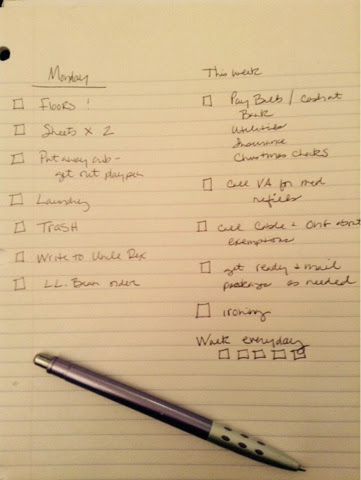 Monday
Floors !
Sheets x 2
Put away crib -
get out playpen
Laundry
Trash
Write to Uncle Rex
L.L. Bean order
This week
Pay Bills /
Bank
Utilities
Insurance
Christmas checks
Call VA for med
refills
call + about
exemptions
get ready + mail
packages as needed
ironing
Walk everyday